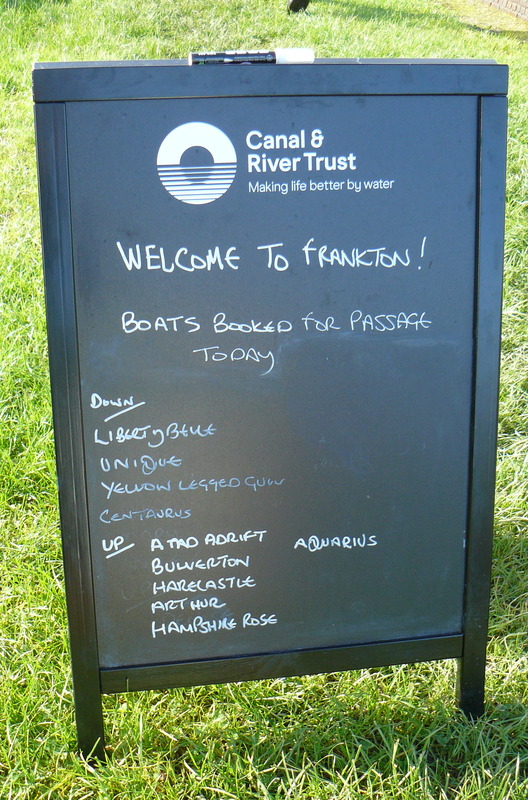 Canal &
River Trust
Making life better by water
WELCOME TO FRANKTON!
BOATS BOOKED FOR PASSAGE
TODAY
DOWN
LIBERTY BELLE
UNIQUE
YELLOW LEGGED GULL
CENTAURUS
UP A TAD ADRIFT AQUARIUS
BULVERTON
HARECASTLE
ARTHUR
HAMPSHIRE ROSE